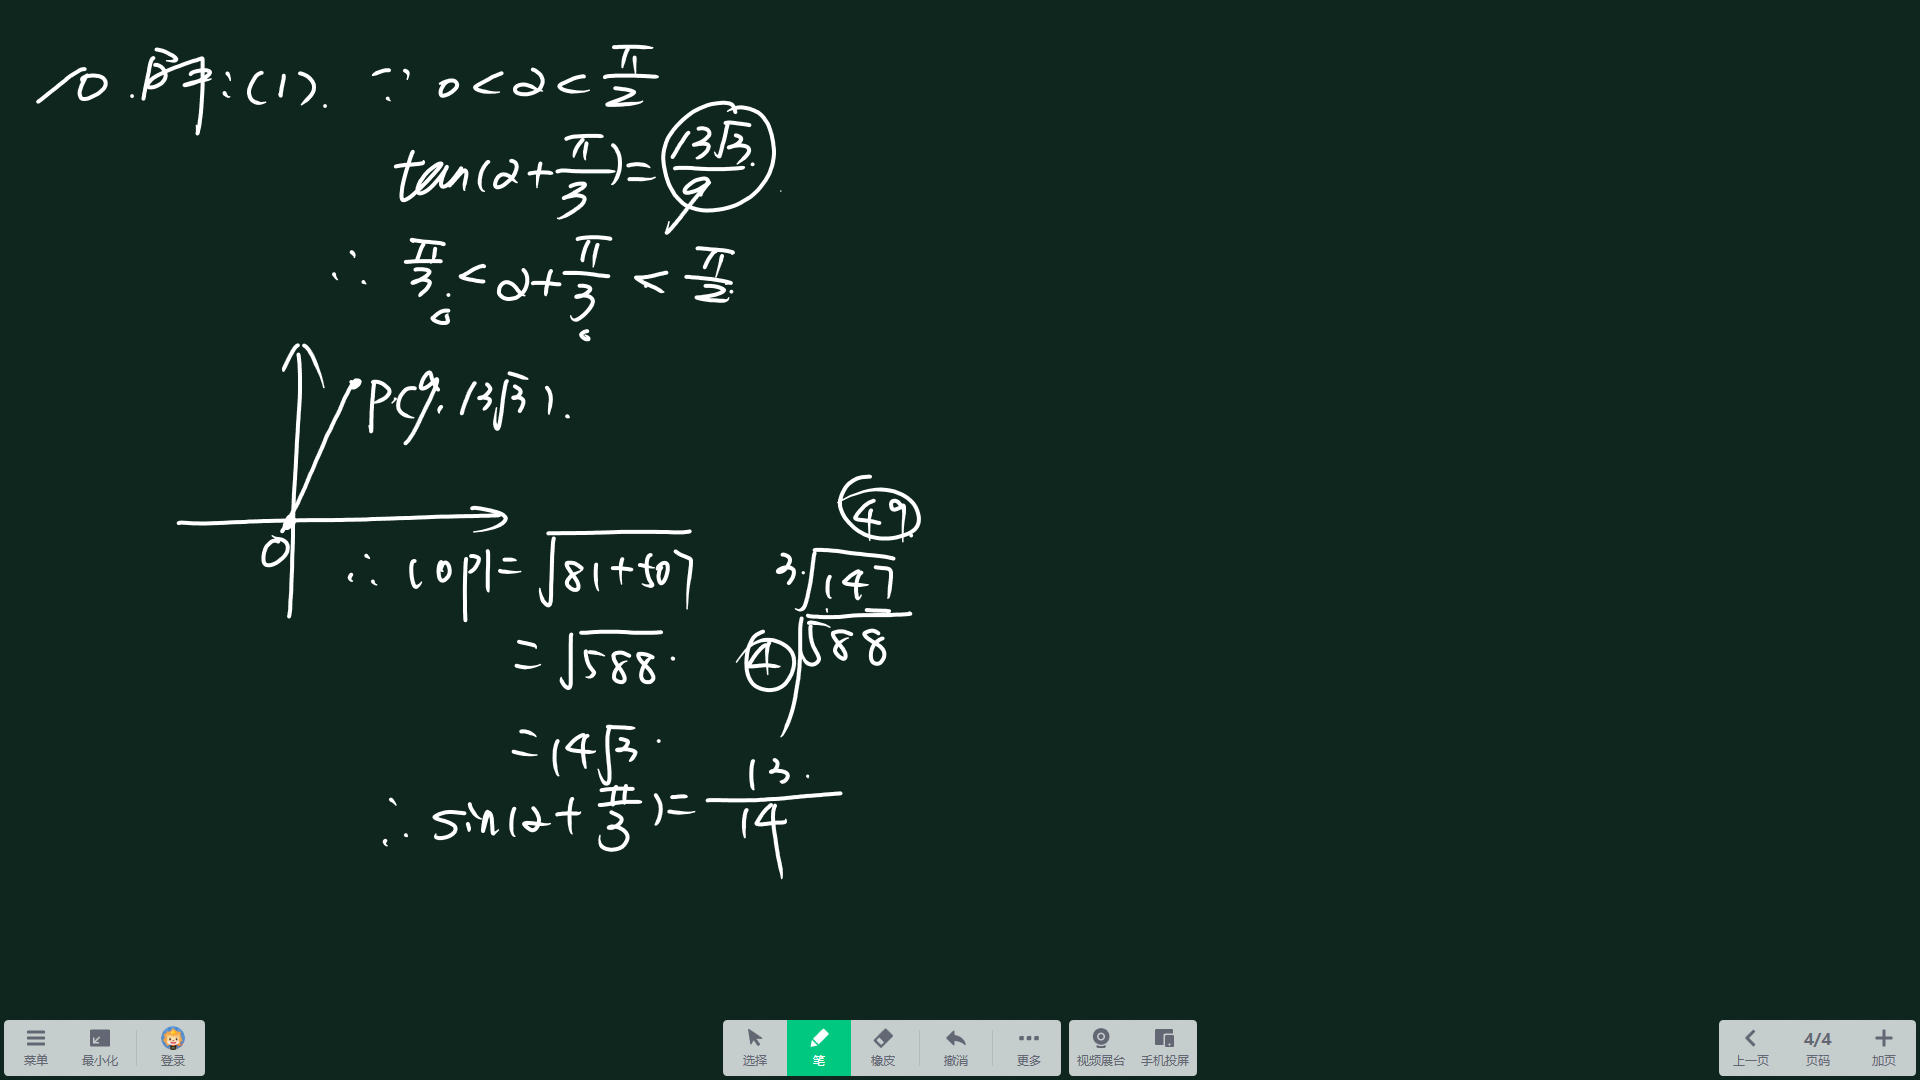 10.解:(1). ∵ 0<α<π/2
tan(α+π/3)=13√3/9
∴ π/3<α+π/3<π/2
P(9,13√3).
O
∴ |OP|=√(81+507)
=√588.
=14√3.
∴ sin(α+π/3)=13/14
49
3 147
4 588
菜单 最小化 登录 选择 笔 橡皮 撤消 更多 视频展台 手机投屏 上一页 4/4 页码 加页